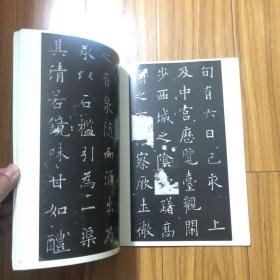 旬有六日己亥上
及中宮歷覽臺觀閑
步西城之陰躇高
之察厥土微
之有泉隨而涌出乃
承以石檻引為一渠
其清若鏡味甘如醴